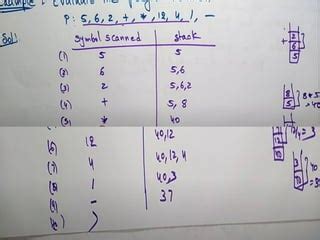 Example: Evaluate the
P: 5, 6, 2, +, *, 12, 4, 1, -
Sol:
Symbol scanned stack
(1) 5 5
(2) 6 5,6
(3) 2 5,6,2
(4) + 5, 8
(5) * 40
(6) 12 40,12
(7) 4 40,12,4
(8) 1 40,3
(9) - 37
(10) )